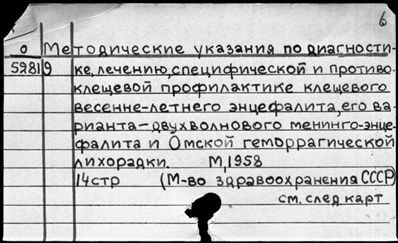 6
О Методические указания по диагности-
52819 ке, лечению, специфической и противо-
клещевой профилактике клещевого
весенне-летнего энцефалита, его ва-
рианта-двухволнового менинго-энце-
фалита и Омской геморрагической
лихорадки. М, 1958
14стр (М-во здравоохранения СССР)
см. след карт